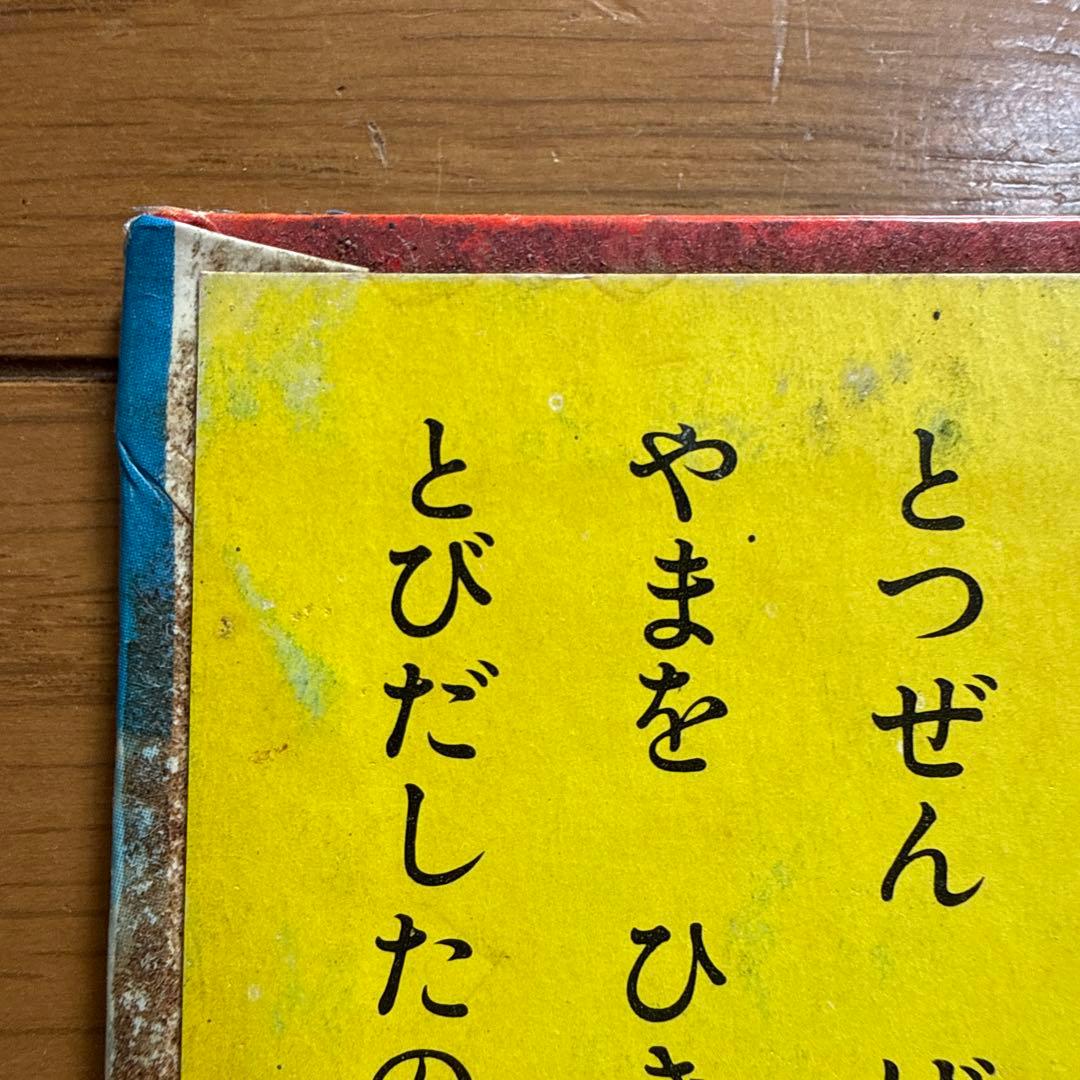 とつぜん
やまを ひ
とびだしたの